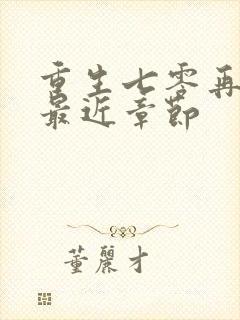 重生七零再
最近章节
董丽才